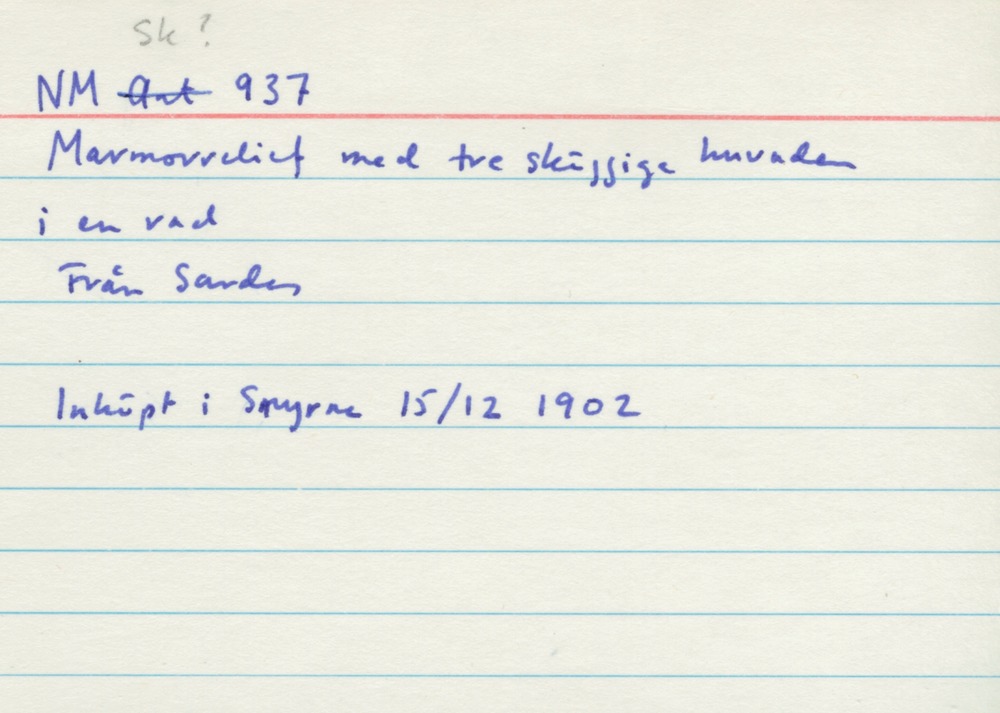 Sk?
NM Ant 937
Marmorrelief med tre skäggiga huvuden
i en rad
Från Sardes
Inköpt i Smyrna 15/12 1902